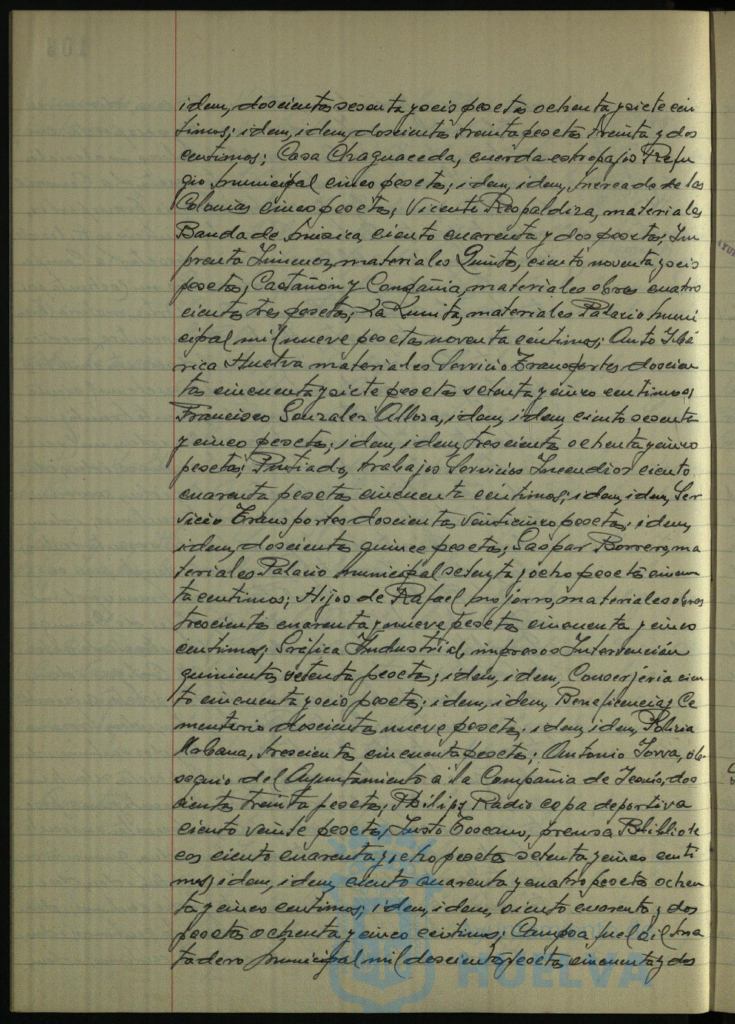 idem, doscientas sesenta y seis pesetas ochenta y siete cen
timos; idem, idem, doscientas treinta pesetas treinta y dos
centimos; Casa Chaguaceda, cuerda estropajo Refu
gio municipal cinco pesetas; idem, idem, Mercado de las
Colonias cinco pesetas; Vicente Respaldiza, materiales
Banda de música ciento cuarenta y dos pesetas; Im
prenta Jimenez, materiales Quinto, ciento noventa y seis
pesetas; Castañón y Compañia, materiales obras cuatro
cientas tres pesetas; La materiales Palacio muni
cipal mil nueve pesetas noventa céntimos; Auto Ibé
rica Huelva materiales Servicio Transportes doscien
tas cincuenta y siete pesetas setenta y cinco centimos;
Francisco Gonzalez idem, idem ciento sesenta
y cinco pesetas; idem, idem, trescientas ochenta y cinco
pesetas; trabajos Servicios Incendios ciento
cuarenta pesetas cincuenta céntimos; idem, idem, Ser
vicio Transportes doscientas veinticinco pesetas; idem,
idem, doscientas quince pesetas; Gaspar Borrero, ma
teriales Palacio municipal setenta y ocho pesetas cincuen
ta centimos; Hijos de Rafael materiales obras
trescientas cuarenta y nueve pesetas cincuenta y cinco
centimos; Gráfica Industrial, impresos Intervención
quinientas setenta pesetas; idem, idem, Conserjéria cien
to cincuenta y seis pesetas; idem, idem, Beneficencia y Ce
menterio doscientas nueve pesetas; idem, idem, Policia
Urbana, trescientas cincuenta pesetas; Antonio ob-
sequio del Ayuntamiento á la Compañia de dos
cientas treinta pesetas; Philips Radio copa deportiva
ciento veinte pesetas; Justo Toscano, prensa Bibliote
cas ciento cuarenta y ocho pesetas setenta y cinco cénti
mos; idem, idem, ciento cuarenta y cuatro pesetas ochen
ta y cinco centimos; idem, idem, ciento cuarenta y dos
pesetas ochenta y cinco céntimos; Campsa fuel oil Ma
tadero municipal mil doscientas pesetas cincuenta y dos
HUELVA